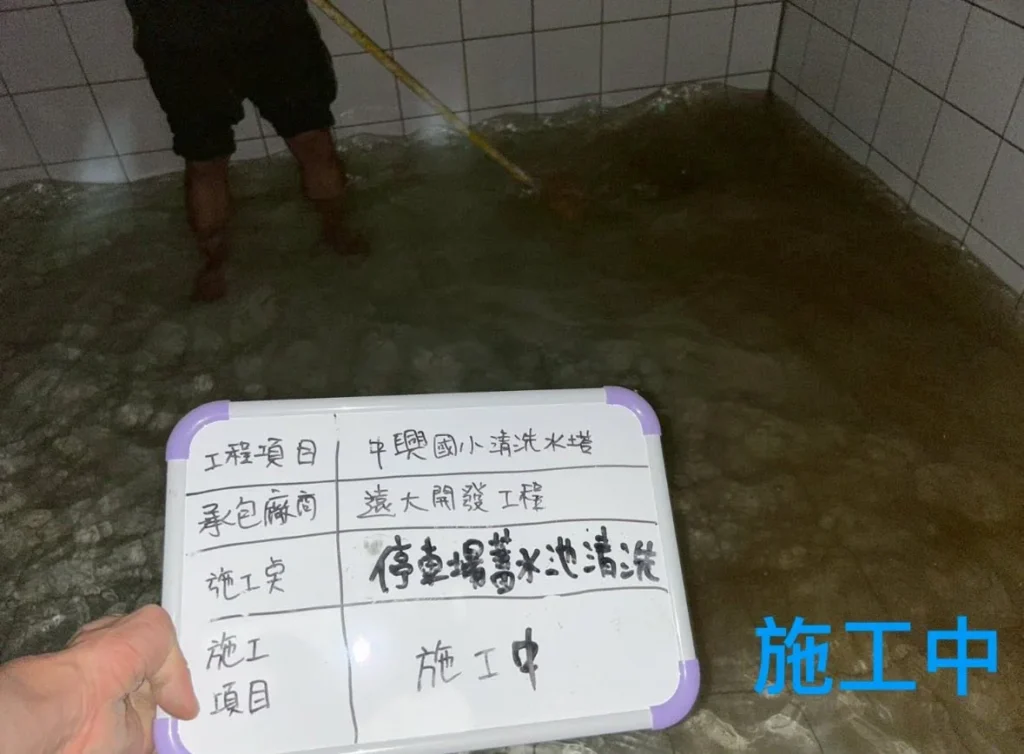 工程項目 中興國小清洗水塔
承包廠商 遠大開發工程
施工点 停車場蓄水池清洗
施工項目 施工中
施工中